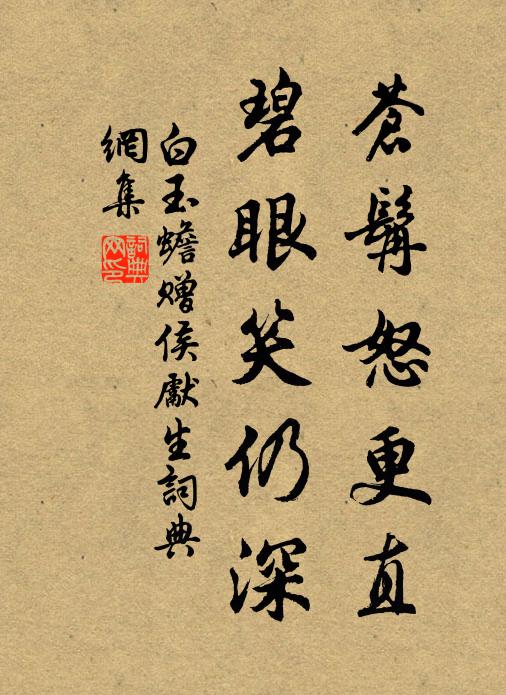 蒼髯怒更直
碧眼笑仍深
白玉蟾贈侯獻生詞典
網集
詞典網印